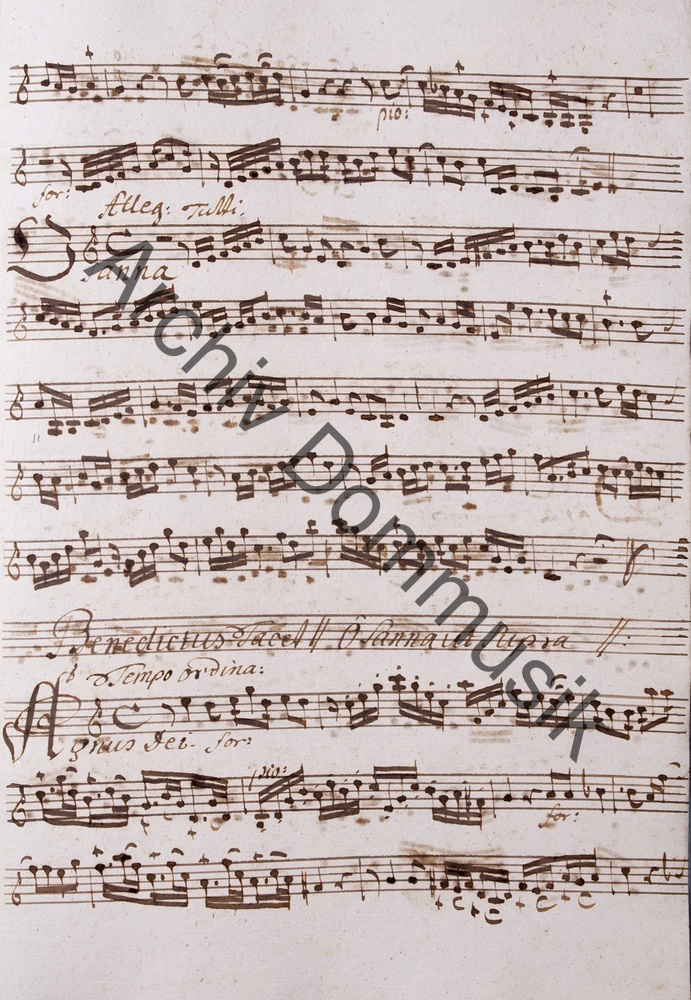 pio:
for:
Alleg: Tutti.
Osanna
Benedictus Tacet // Osanna ut supra //:
Tempo ordina:
Agnus Dei. for:
pio:
for:
Archiv Dommusik